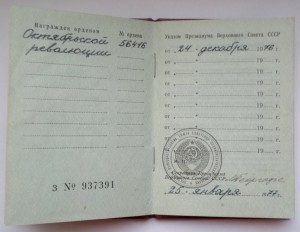 Награжден орденом
№ ордена
Октябрьской
революции
56416
З № 937391
Указом Президиума Верховного Совета СССР
от „24" декабря 1976.
от „ " 19
от „ " 19
от „ " 19
от „ " 19
от „ " 19
от „ " 19
от „ " 19
Секретарь Президиума
Верховного Совета СССР
„25" января 1977.